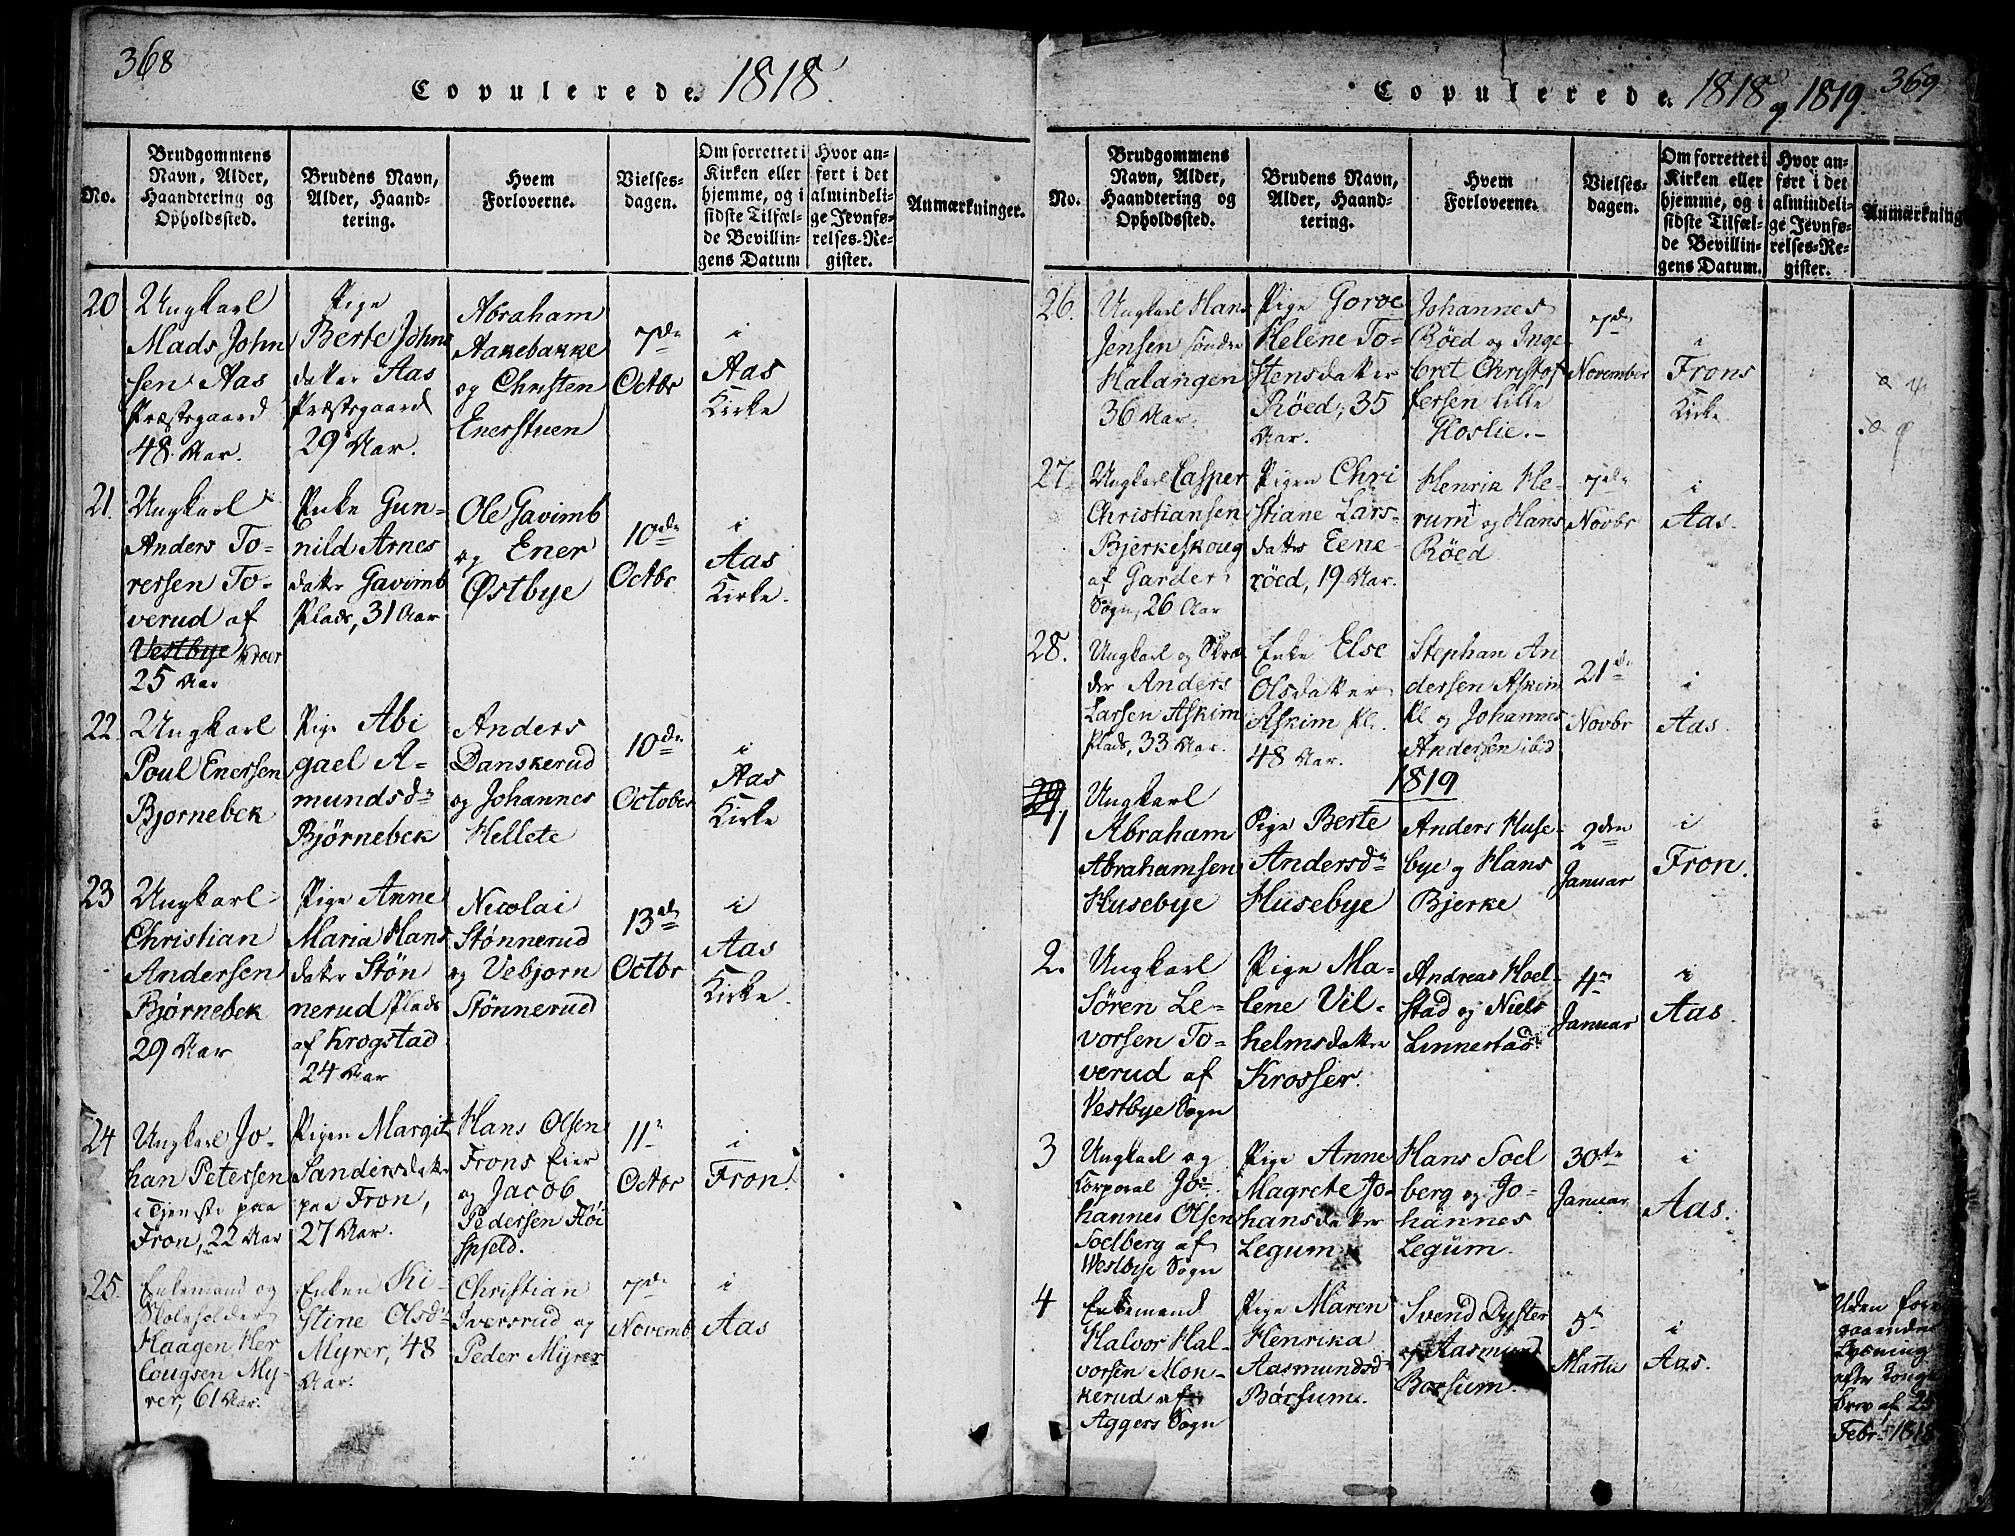 368
Copulerede. 1818
No.
Brudgommens
Navn, Alder,
Haandtering og
Opholdssted.
Brudens Navn,
Alder, Haand-
tering.
Hvem
Forloverne.
Vielses-
dagen.
Om forrettet i
Kirken eller
hjemme, og i
sidste Tilfæl-
de Bevillin-
gens Datum
Hvor an-
ført i det
almindeli-
ge Jevnfø-
relses-Re-
gister.
Anmærkninger.
20
Ungkarl
Mads John
sen Aas
Præstegaard
48 Aar.
Pige
Berte Johns
datter Aas
Præstegaard
29 Aar.
Abraham
Aakebakke
og Christen
Enerstuen
7de
Octbr
i
Aas
Kirke
21.
Ungkarl
Anders To-
rersen To-
verud af
Vestbye Kroer
25 Aar
Enke Gun-
nild Arnes
datter Gavimb
Plads, 31 Aar
Ole Gavimb
og Ener
Østbye
10de
Octbr
i
Aas
Kirke.
22.
Ungkarl
Poul Enersen
Bjornebek
Pige Abi
gael A-
mundsdr
Bjørnebek
Anders
Danskerud
og Johannes
Hellete
10de
October
i
Aas
Kirke
23
Ungkarl
Christian
Andersen
Bjørnebek
29 Aar
Pige Anne
Maria Hans
datter Støn
nerud Plads
af Krogstad
24 Aar
Nicolai
Stønnerud
og Vebjorn
Stønnerud
13de
Octbr
i
Aas
Kirke.
24
Ungkarl Jo-
han Petersen
i Tjeneste paa
Fron, 22 Aar
Pigen Margit
Sandersdatter
paa Fron,
27 Aar.
Hans Olsen
Frons Eier
og Jacob
Pedersen Høi
Spfeld.
11te
Octbr
i
Fron.
25.
Enkemand og
Skoleholder
Haagen Her
lougsen My-
rer, 61 Aar.
Enken Ki-
stine Olsdr
Myrer, 48
Aar.
Christian
Iversrud og
Peder Myrer
7de
Novemb
i
Aas
369
Copulerede. 1818 og 1819.
No.
Brudgommens
Navn, Alder,
Haandtering og
Opholdssted.
Brudens Navn,
Alder, Haand-
tering.
Hvem
Forloverne.
Vielses-
dagen.
Om forrettet i
Kirken eller
hjemme, og i
sidste Tilfæl-
de Bevillin-
gens Datum.
Hvor an-
ført i det
almindeli-
ge Jevnfø-
relses-Re-
gister.
Anmærkning
26.
Ungkarl Hans
Jensen søndre
Halangen
36 Aar.
Pige Gorve
Helene To-
stensdatter
Röed, 35
Aar.
Johannes
Röed og Inge-
bret Christof
fersen lille
Hoslie.
7de
November
i
Frons
Kirke
27.
Ungkarl Casper
Christiansen
Bjerkeskoug
af Garder
Sogn, 26 Aar
Pigen Chri
stiane Lars-
datter Eene-
röed, 19 Aar.
Henrik He-
rum og Hans
Röed
7de
Novbr
i
Aas.
28.
Ungkarl og Skræd
der Anders
Larsen Askim
Plads, 33 Aar.
Enke Else
Olsdatter
Askim Pl.
48 Aar.
Stephan An
dersen Askim
Pl og Johannes
Andersen ibid
21de
Novbr
i
Aas.
1819
29, 1
Ungkarl
Abraham
Abrahamsen
Husebye
Pige Berte
Andersdr
Husebye
Anders Huse-
bye og Hans
Bjerke
2den
Januar
i
Fron.
2.
Ungkarl
Søren Le-
vorsen To-
verud af
Vestbye Sogn
Pige Ma-
lene Vil-
helmsdatter
Krosser.
Andreas Hoel-
stad og Niels
Linnestad
4de
Januar
i
Aas.
3
Ungkarl og
Korporal Jo-
hannes Olsen
Soelberg af
Westbye Sogn
Pige Anne
Magrete Jo-
hansdatter
Legum
Hans Soel
berg og Jo-
hannes
Legum.
30te
Januar
i
Aas.
4
Enkemand
Halvor Hal-
vorsen Mon-
kerud af
Aggers Sogn
Pige Maren
Henrika
Aasmundsd
Börsum.
Svend Dyster
og Aasmund
Borsum.
5te
Martii
i
Aas.
Uden fore
gaaende
Lysning
efter Konge
Brev af 25
Febr. 1818